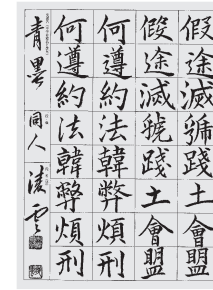 假途滅虢踐土會盟
假途滅虢踐土會盟
何遵約法韓弊煩刑
何遵約法韓弊煩刑
青墨
同人